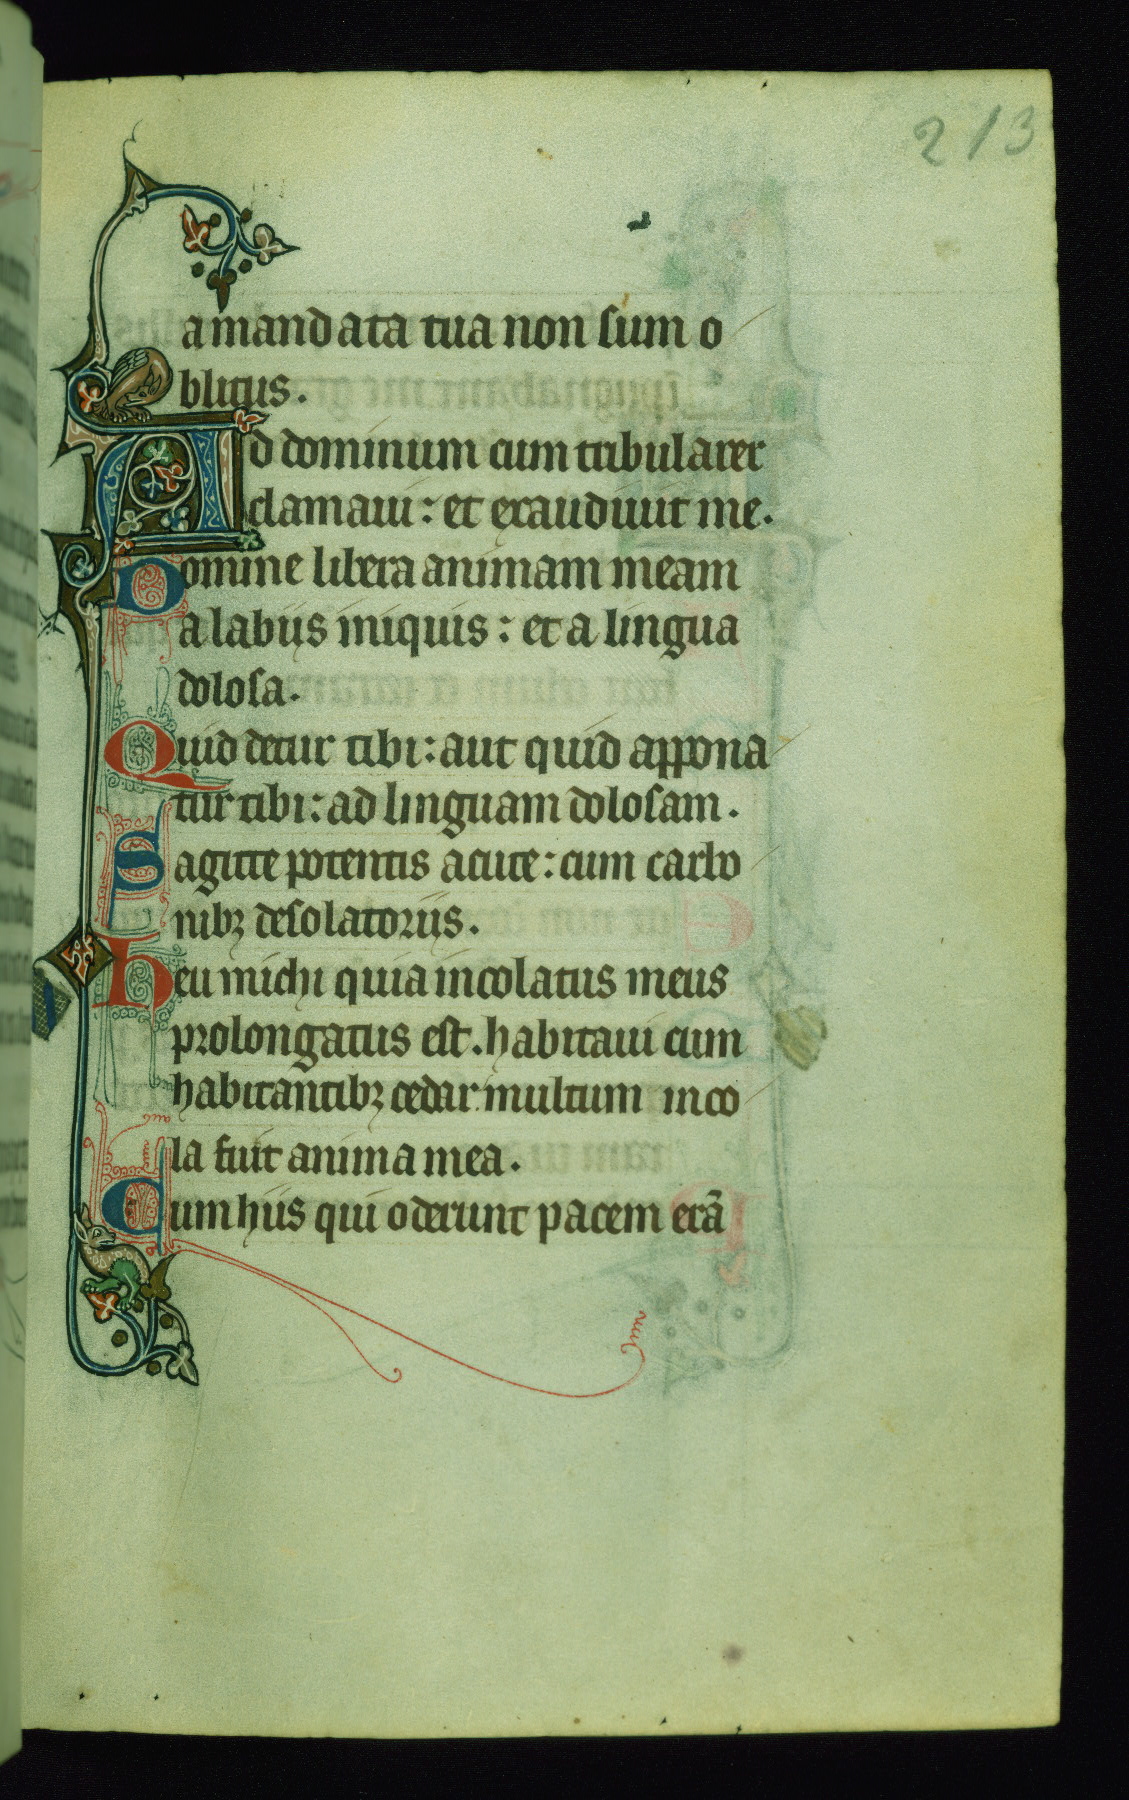 213
a mandata tua non sum o
blitus.
Ad dominum cum tribularer
clamaui: et exaudiuit me.
Domine libera animam meam
a labiis iniquis: et a lingua
dolosa.
Quid detur tibi: aut quid appona
tur tibi: ad linguam dolosam.
Sagitte potentis acute: cum carbo
nibꝫ desolatoriis.
Heu michi quia incolatus meus
prolongatus est. habitaui cum
habitantibꝫ cedar: multum inco
la fuit anima mea.
Cum hiis qui oderunt pacem erã